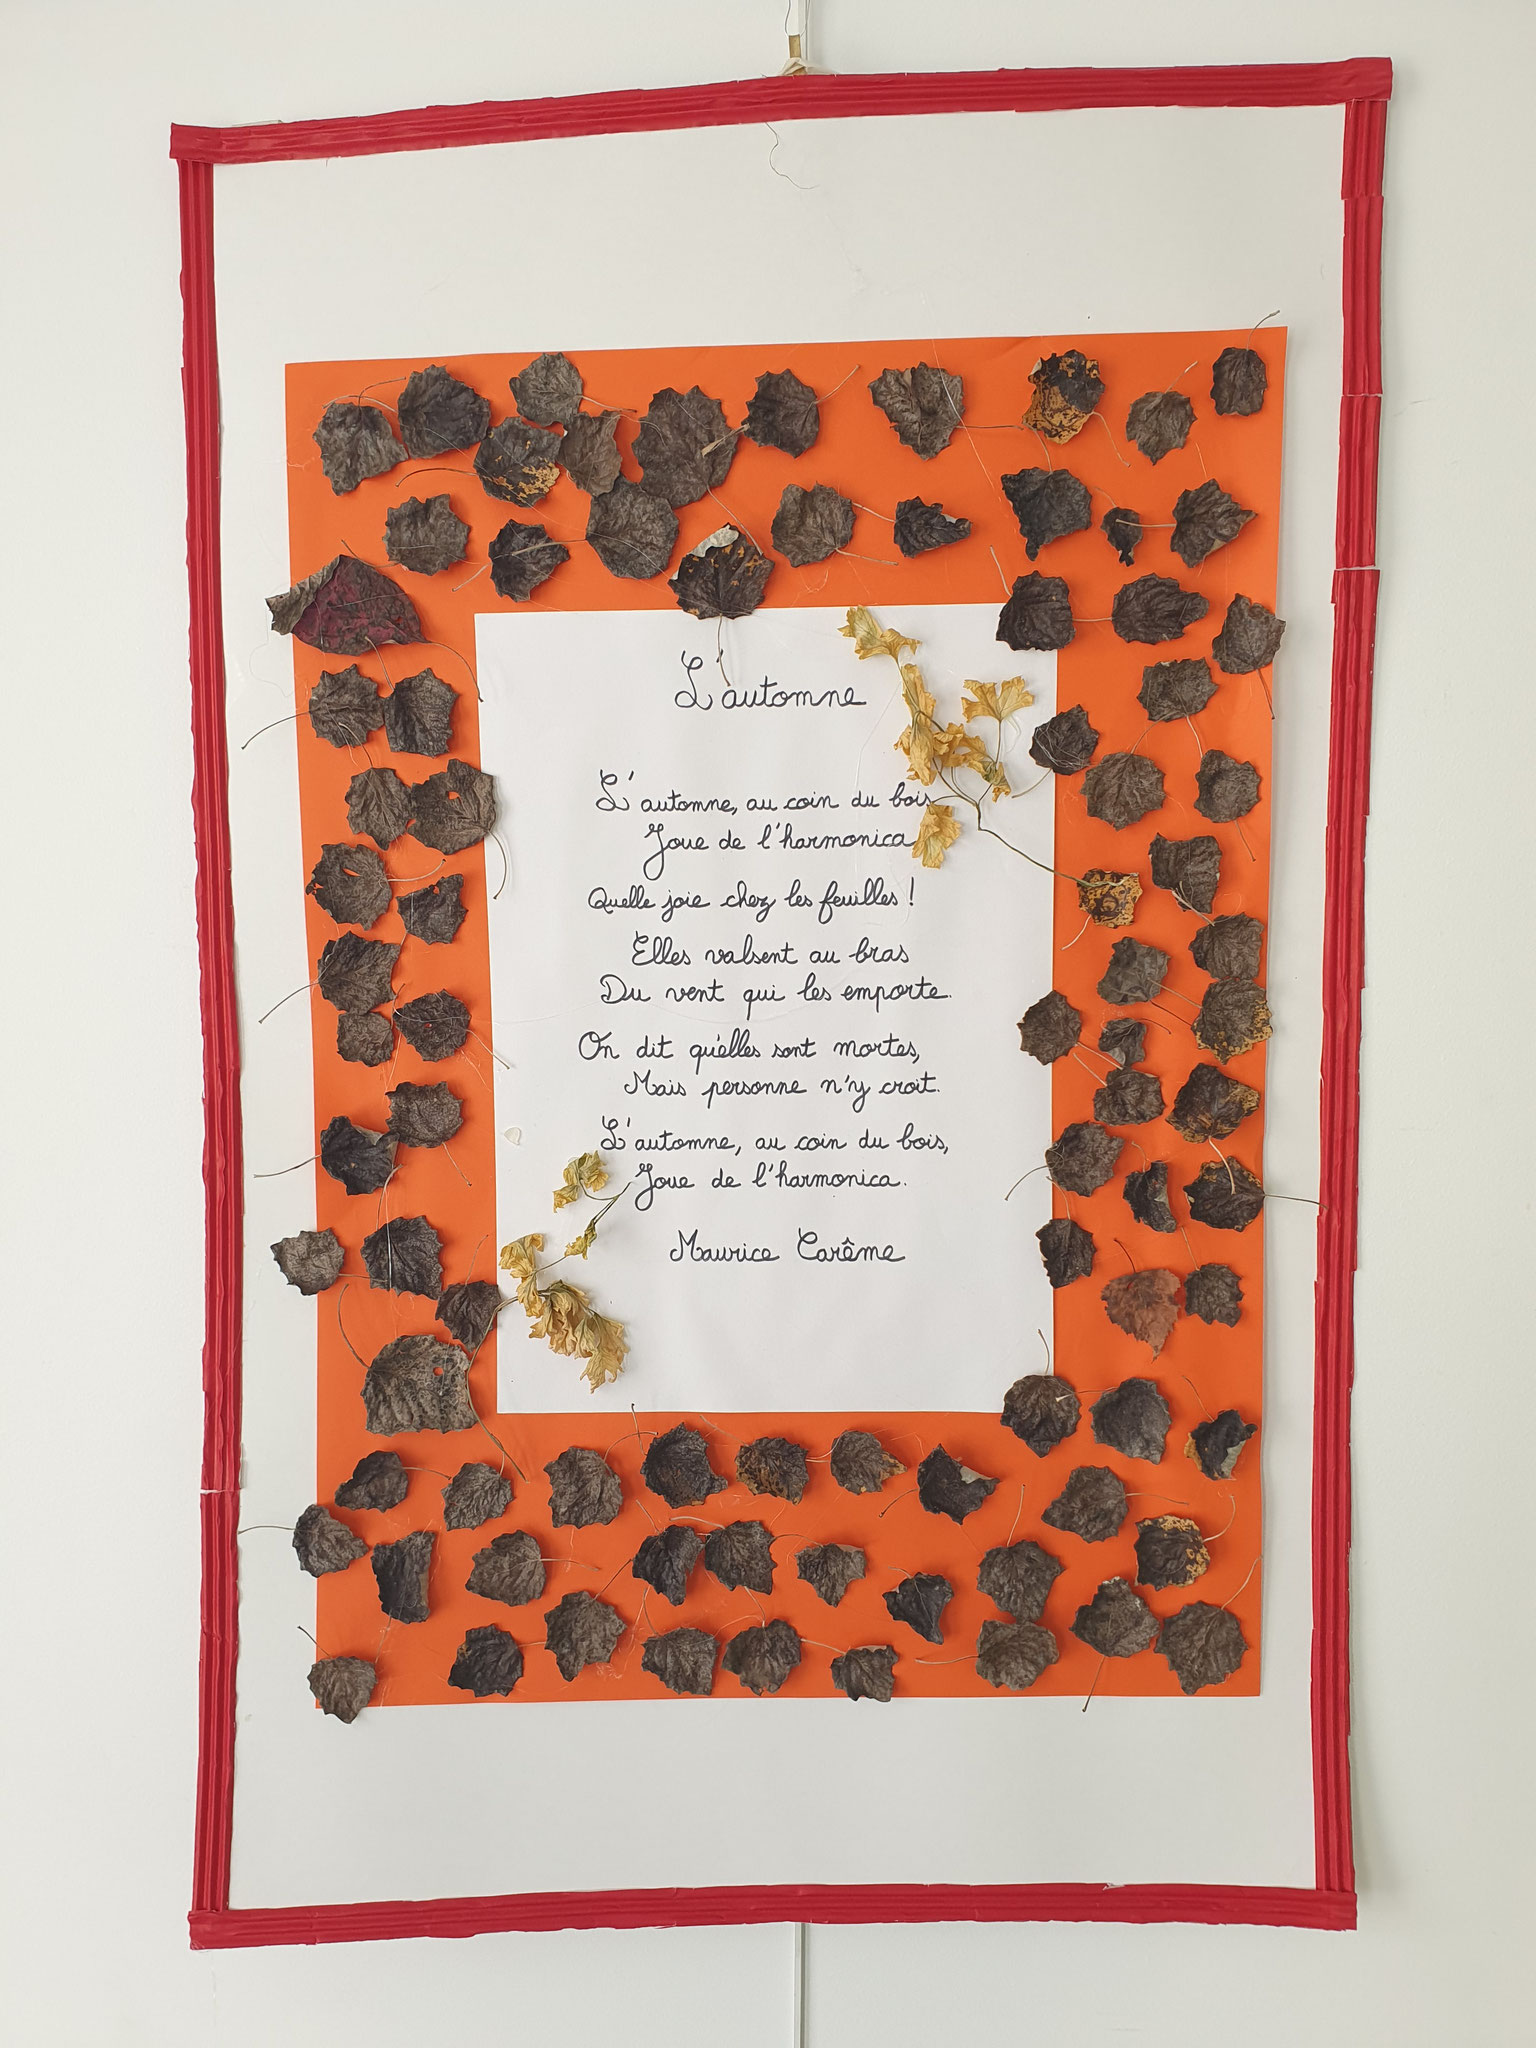 L'automne
L'automne, au coin du bois
Joue de l'harmonica
Quelle joie chez les feuilles !
Elles valsent au bras
Du vent qui les emporte.
On dit qu'elles sont mortes,
Mais personne n'y croit.
L'automne, au coin du bois,
Joue de l'harmonica.
Maurice Carême